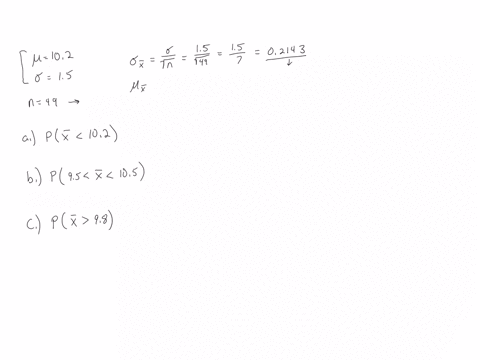 μ = 10.2
σ = 1.5
n = 49 →
σx̄ = σ/√n = 1.5/√49 = 1.5/7 = 0.2143
↓
μx̄
a.) P(x̄ < 10.2)
b.) P(9.5 < x̄ < 10.5)
c.) P(x̄ > 9.8)